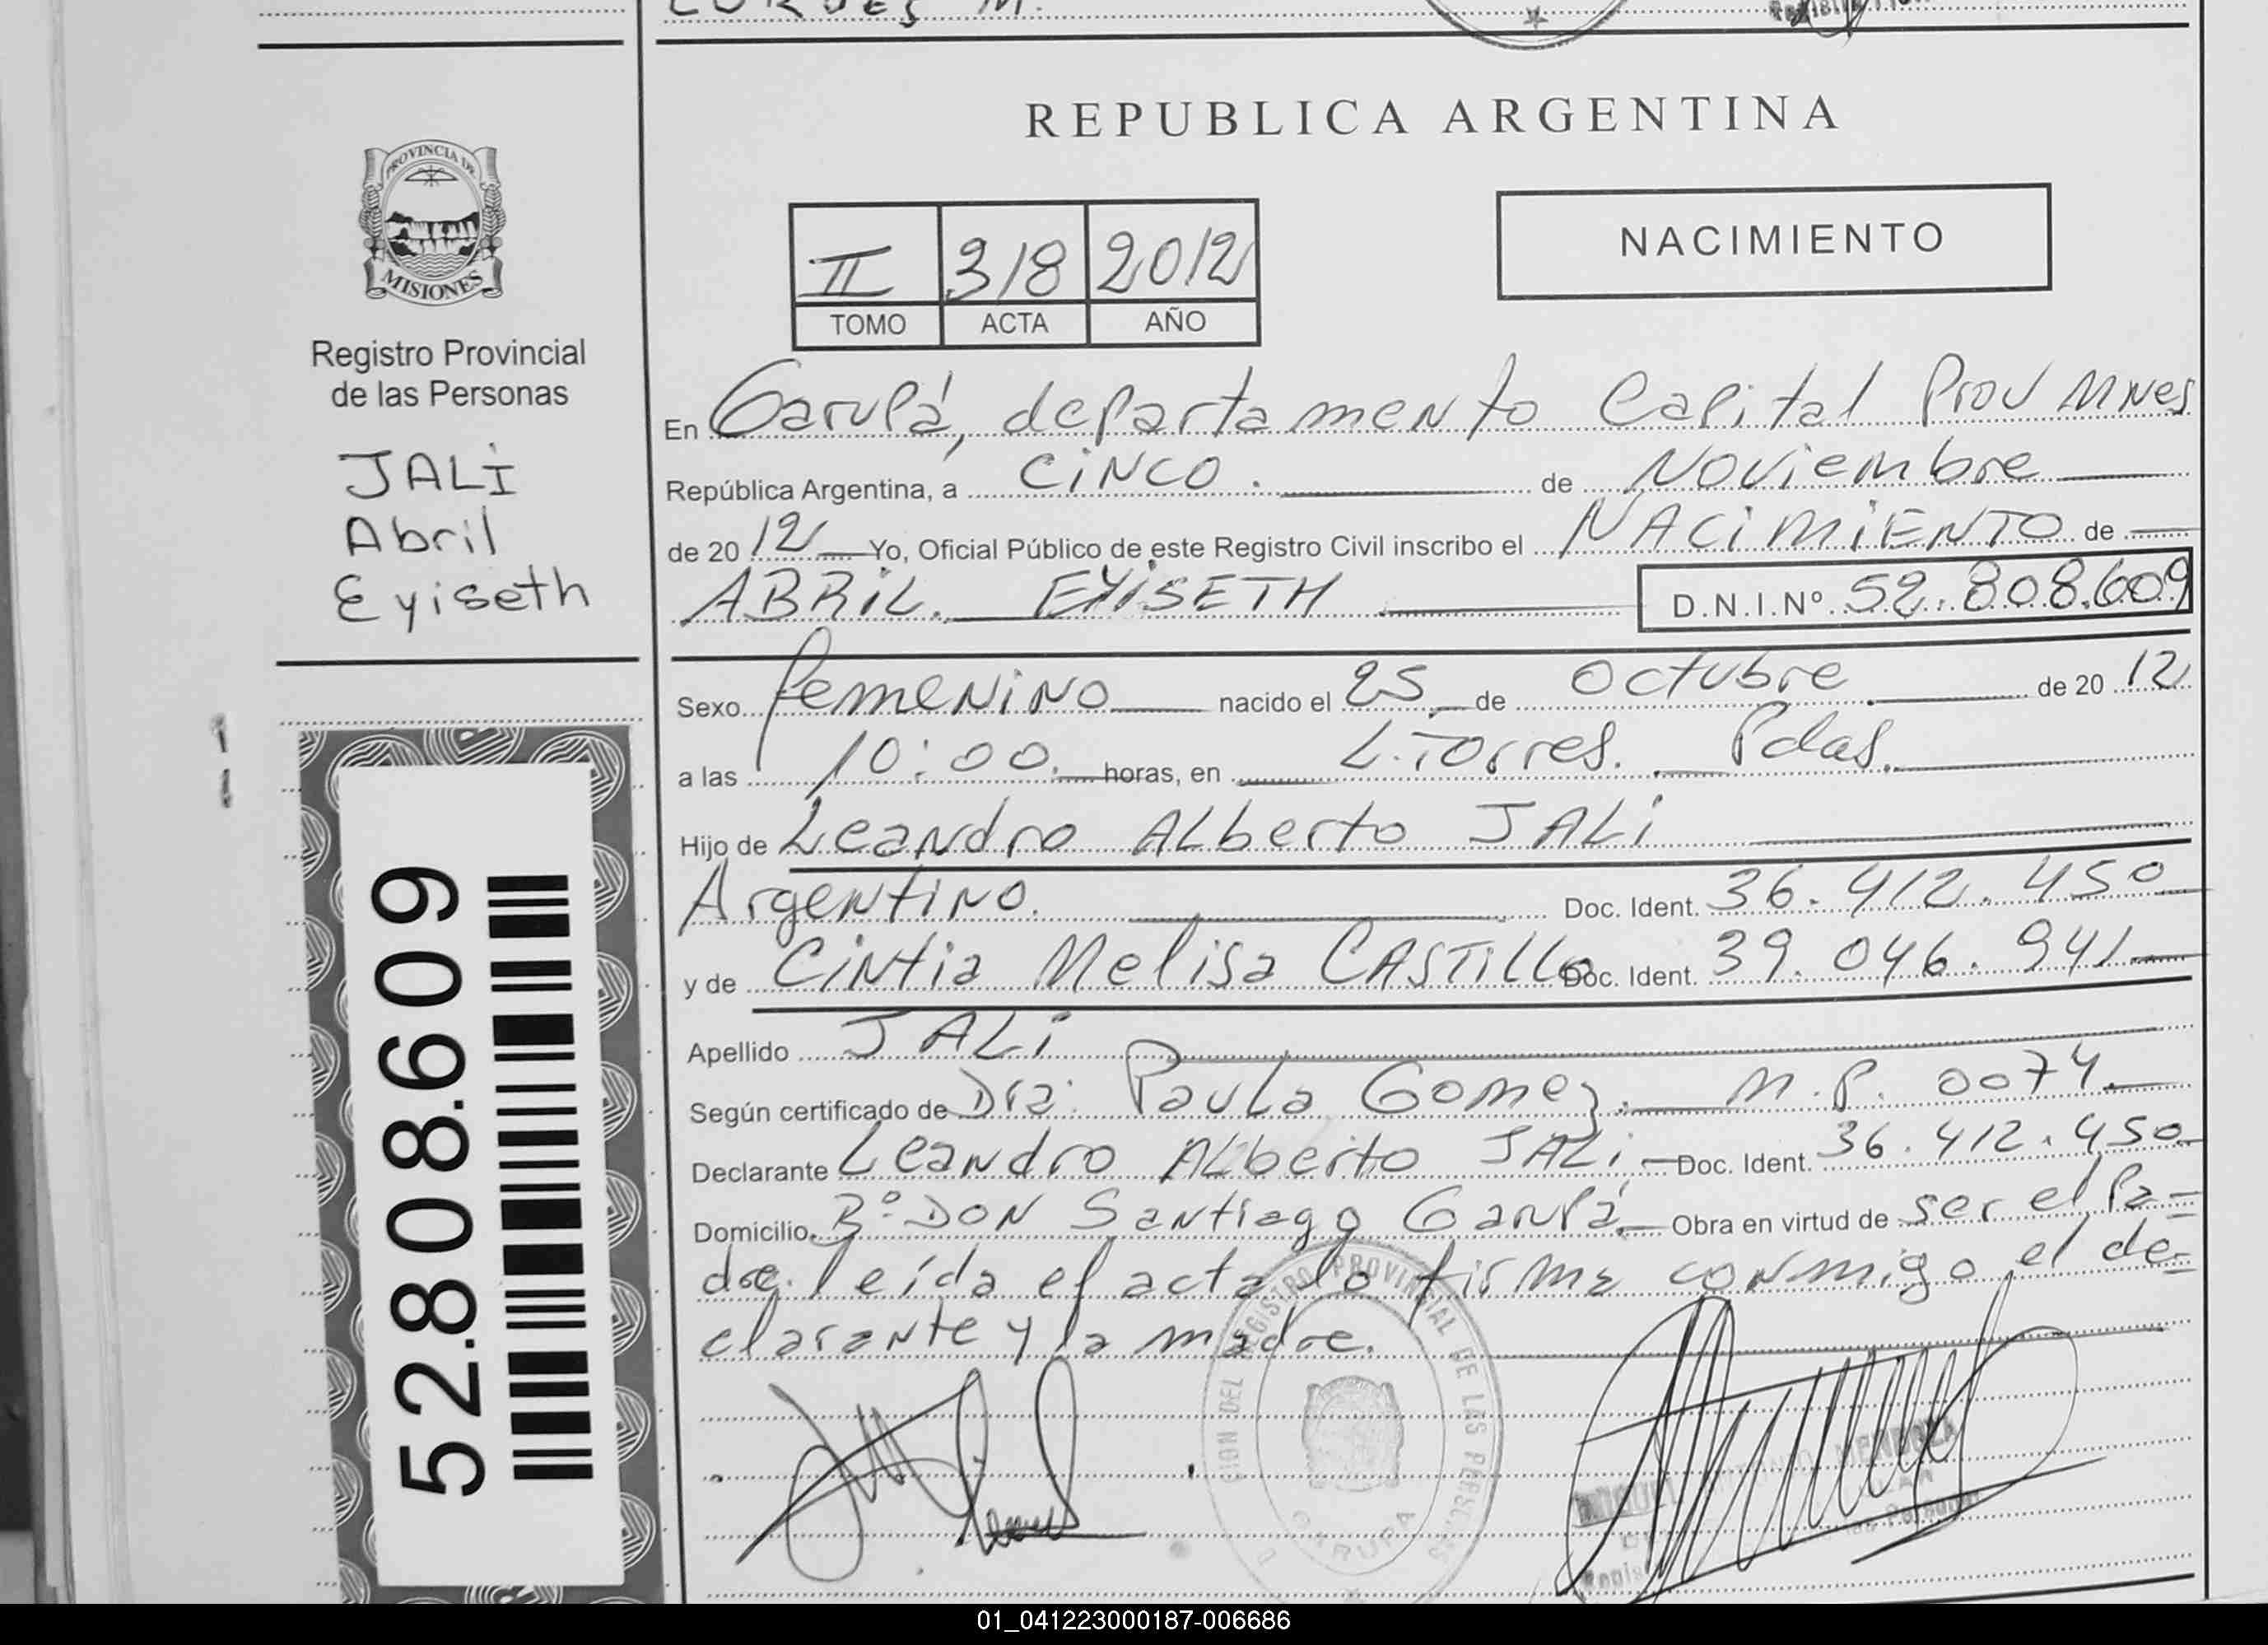 LURDES M.
REPUBLICA ARGENTINA
PROVINCIA DE
MISIONES
Registro Provincial
de las Personas
JALI
Abril
Eyiseth
NACIMIENTO
II 318 2012
TOMO ACTA AÑO
En Garupá, departamento Capital Prov Mnes
República Argentina, a CINCO. de Noviembre
de 2012 Yo, Oficial Público de este Registro Civil inscribo el NACIMIENTO de
ABRIL. EYISETH D.N.I.Nº 52.808.609
Sexo femenino nacido el 25 de Octubre de 2012
a las 10:00. horas, en L. Torres. Pdas.
Hijo de Leandro Alberto JALI
Argentino. Doc. Ident. 36.412.450
y de Cintia Melisa CASTILLO Doc. Ident. 39.046.941
Apellido JALI
Según certificado de Dra: Paula Gomez. M.P. 0074.
Declarante Leandro Alberto JALI Doc. Ident. 36.412.450
Domicilio Bº DON Santiago Garupá Obra en virtud de ser el Pa=
dre. leída el acta lo firma conmigo el de=
clarante y la madre.
52.808.609
REGISTRO PROVINCIAL DE LAS PERSONAS
GARUPA
MENDOZA
01_041223000187-006686